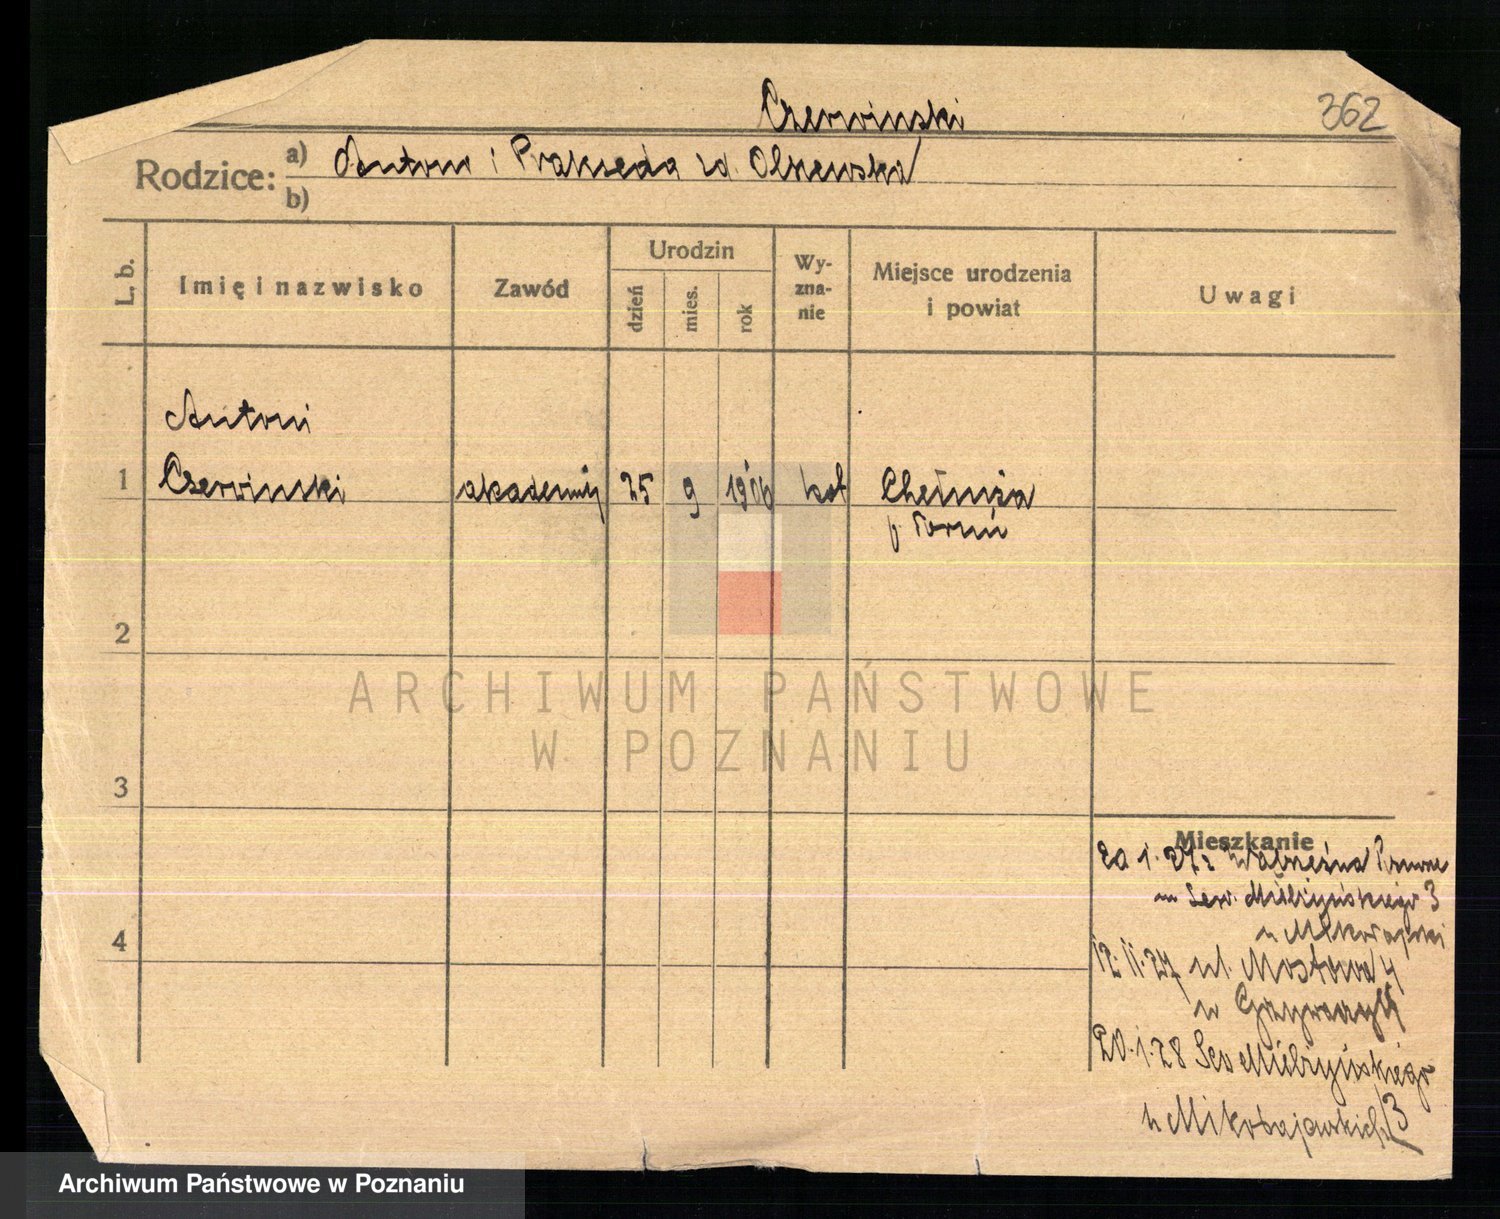 Czerwinski
362
Rodzice: a) Antoni i Prakseda zd. Olszewska
b)
L. b.
Imię i nazwisko
Zawód
Urodzin
dzień
mies.
rok
Wy-
zna-
nie
Miejsce urodzenia
i powiat
Uwagi
Antoni
1 Czerwinski akademik 25 9 1906 kat Chełmża
p Toruń
2
ARCHIWUM PAŃSTWOWE
W POZNANIU
3
Mieszkanie
20.1.27
Sew. Mielżyńskiego 3
4
12.11.27 ul. Mostowa 4
20.1.28 Sew Mielżyńskiego
3
u Mikołajewskich
Archiwum Państwowe w Poznaniu